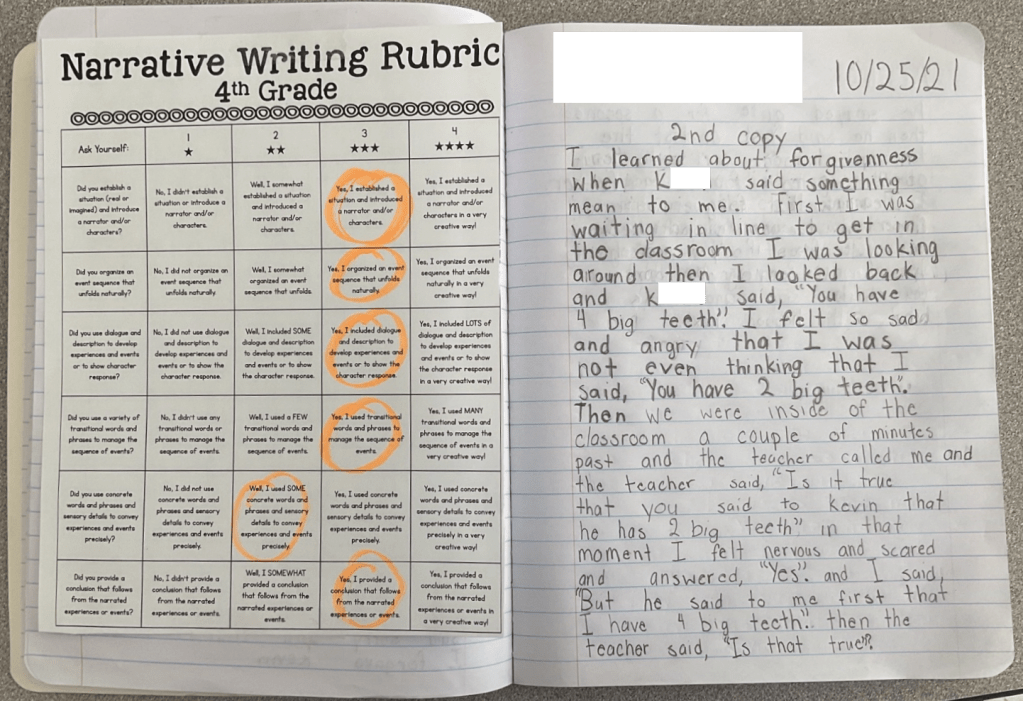 Narrative Writing Rubric
4th Grade
Ask Yourself:
1
★
2
★★
3
★★★
4
★★★★
Did you establish a
situation (real or
imagined) and introduce
a narrator and/or
characters?
No, I didn't establish a
situation or introduce a
narrator or
characters.
Well, I somewhat
established a situation
and introduced a
narrator and/or
characters.
Yes, I established a
situation and introduced
a narrator and/or
characters.
Yes, I established a
situation and introduced
a narrator and/or
characters in a very
creative way!
Did you organize an
event sequence that
unfolds naturally?
No, I did not organize an
event sequence that
unfolds naturally.
Well, I somewhat
organized an event
sequence that unfolds.
Yes, I organized an event
sequence that unfolds
naturally.
Yes, I organized an event
sequence that unfolds
naturally in a very
creative way!
Did you use dialogue and
description to develop
experiences and events
or to show character
response?
No, I did not use dialogue
and description to
develop experiences and
events or to show the
character response.
Well, I included SOME
dialogue and description
to develop experiences
and events or to show
the character response.
Yes, I included dialogue
and description to
develop experiences and
events or to show the
character response.
Yes, I included LOTS of
dialogue and description
to develop experiences
and events or to show
the character response
in a very creative way!
Did you use a variety of
transitional words and
phrases to manage the
sequence of events?
No, I didn't use any
transitional words or
phrases to manage the
sequence of events.
Well, I used a FEW
transitional words and
phrases to manage the
sequence of events.
Yes, I used transitional
words and phrases to
manage the sequence of
events.
Yes, I used MANY
transitional words and
phrases to manage the
sequence of events in a
very creative way!
Did you use concrete
words and phrases and
sensory details to convey
experiences and events
precisely?
No, I did not use
concrete words and
phrases and sensory
details to convey
experiences and events
precisely.
Well, I used SOME
concrete words and
phrases and sensory
details to convey
experiences and events
precisely.
Yes, I used concrete
words and phrases and
sensory details to convey
experiences and events
precisely.
Yes, I used concrete
words and phrases and
sensory details to convey
experiences and events
precisely in a very
creative way!
Did you provide a
conclusion that follows
from the narrated
experiences or events?
No, I didn't provide a
conclusion that follows
from the narrated
experiences or events.
Well, I SOMEWHAT
provided a conclusion
that follows from the
narrated experiences or
events.
Yes, I provided a
conclusion that follows
from the narrated
experiences or events.
Yes, I provided a
conclusion that follows
from the narrated
experiences or events in
a very creative way!
10/25/21
2nd copy
I learned about forgivenness
when K said something
mean to me. first I was
waiting in line to get in
the classroom I was looking
around then I looked back
and k said, "You have
4 big teeth". I felt so sad
and angry that I was
not even thinking that I
said, "You have 2 big teeth".
Then we were inside of the
classroom a couple of minutes
past and the teacher called me and
the teacher said, "Is it true
that you said to Kevin that
he has 2 big teeth" in that
moment I felt nervous and scared
and answered, "Yes". and I said,
"But he said to me first that
I have 4 big teeth." then the
teacher said, "Is that true"?